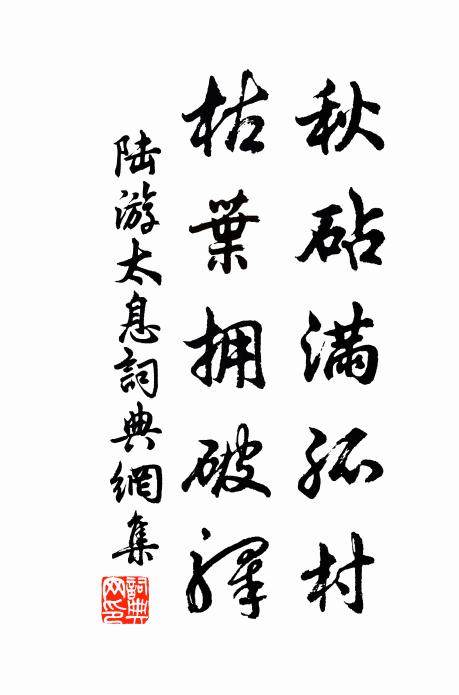 秋砧滿孤村
枯葉拥破驛
陆游太息詞典網集
詞典